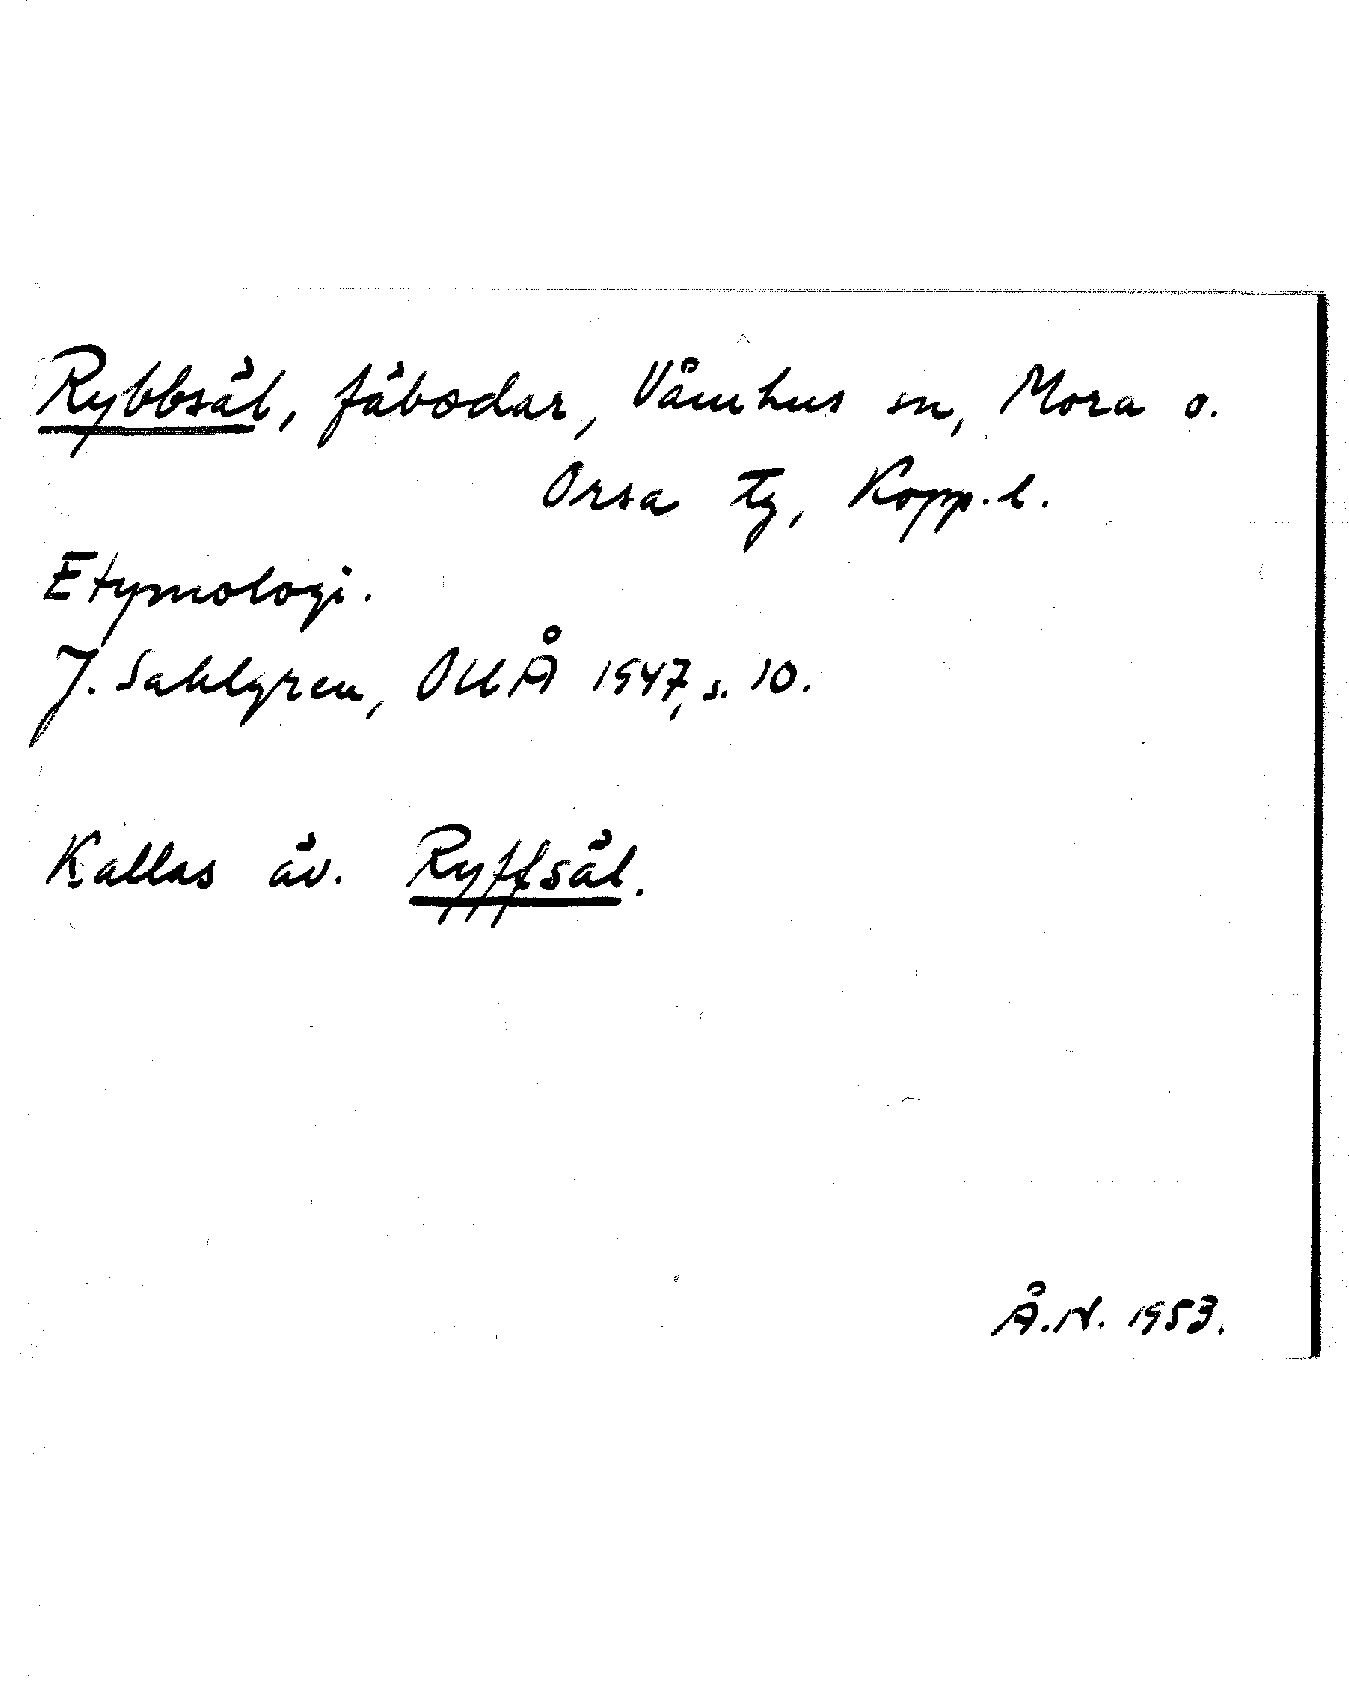 Rybbsäl, fäbodar, Våmhus sn, Mora o.
Orsa tg, Kopp. l.
Etymologi.
J. Sahlgren, OUÅ 1947, s. 10.
Kallas äv. Ryffsäl.
Å.N. 1953.